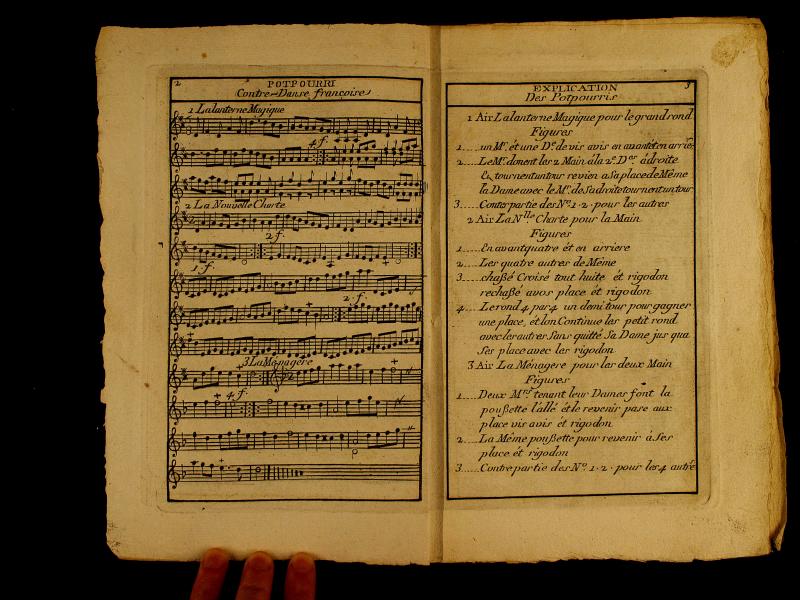 2
POTPOURRI
Contre-Danse françoise
1 La lanterne Magique
4 f.
2 La Nouvelle Charte
2 f.
1. f.
2. f.
3 La Ménagere
4. f.
EXPLICATION 3
Des Potpourris
1 Air La lanterne Magique pour le grand rond
Figures
1.....un Mr. ét une De. de vis avis en avant ét en arriere
2.....Le Mr. donent les 2 Main á la 2e. Der. á droite
Ex tournent un tour revien a Sa place de Même
la Dame avec le Mr. de Sa droite tournent un tour
3.....Contre partie des No. 1 · 2 · pour les autres
2 Air La Nlle Charte pour la Main
Figures
1.....En avant quatre ét en arriere
2.....Les quatre autres de Même
3.....chaßé Croisé tout huite ét rigodon
rechaßé avos place ét rigodon
4.....Le rond 4 par 4 un demi tour pour gagner
une place, ét lon Continue les petit rond
avec les autres Sans quitté Sa Dame jus qua
Ses place avec les rigodon
3 Air La Ménagere pour les deux Main
Figures
1.....Deux Mrs. tenant leur Dames font la
poußette l'allé ét le revenir pase aux
place vis avis ét rigodon
2.....La Même poußette pour revenir á Ses
place ét rigodon
3.....Contre partie des No. 1 · 2 · pour les 4 autre